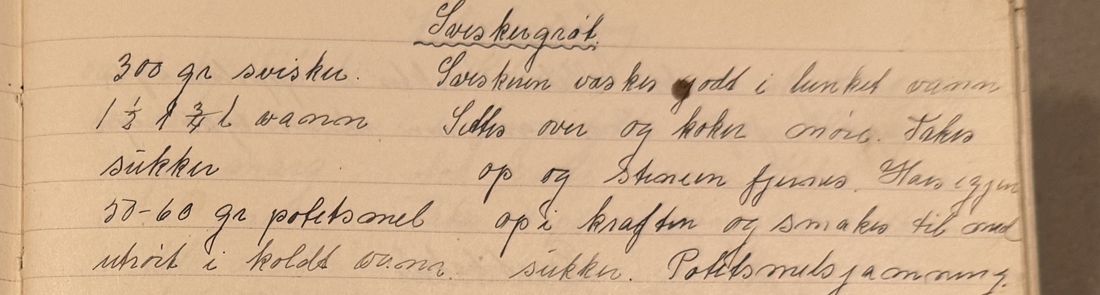 Sviskergrøt
300 gr svisker. Sviskeren vaskes godt i lunket vann
1 1/2 1 3/4 l vann Settes over og koker møre. Takes
sukker op og stenen fjernes. Haes igjen
50-60 gr potetsmel op i kraften og smakes til med
utrørt i koldt vann. sukker. Potetsmelsjamning.